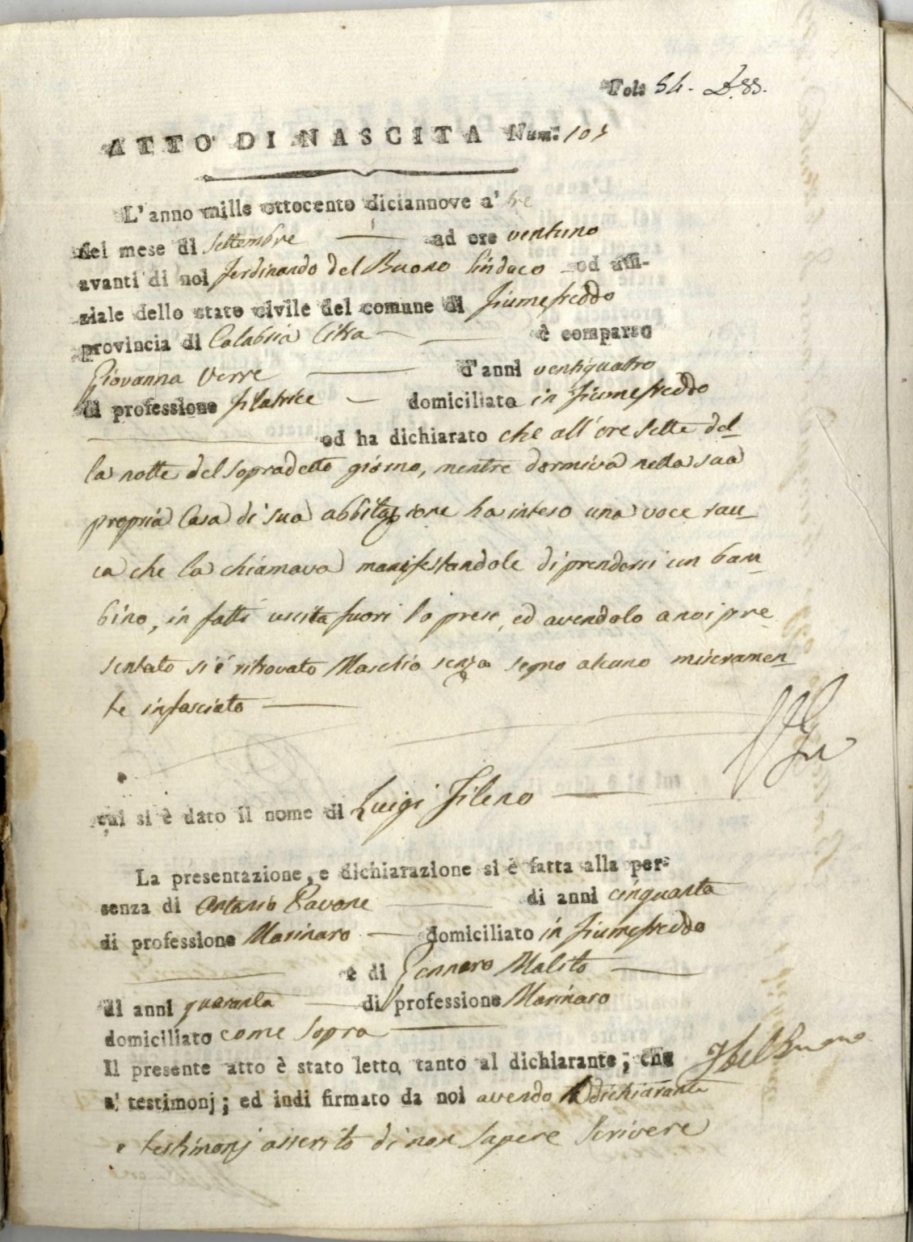 Fol: 54.
ATTO DI NASCITA Num: 105
L'anno mille ottocento diciannove a' tre
del mese di Settembre ad ore ventuno
avanti di noi Ferdinando del Buono Sindaco ed uffi-
ziale dello stato civile del comune di Fiumefreddo
provincia di Calabria Citra è comparso
Giovanna Verre d'anni ventiquattro
di professione filatrice domiciliata in Fiumefreddo
ed ha dichiarato che all'ore sette del-
la notte del sopradetto giorno, mentre dormiva nella sua
propria Casa di sua abbitazione ha inteso una voce rau-
ca che la chiamava manifestandole di prendersi un bam-
bino, in fatti uscita fuori lo prese, ed avendolo a noi pre
sentato si è ritrovato Maschio senza segno alcuno miseramen-
te infasciato
cui si è dato il nome di Luigi Fileno
La presentazione, e dichiarazione si è fatta alla per-
senza di Antonio Pavone di anni cinquanta
di professione Marinaro domiciliato in Fiumefreddo
e di Gennaro Malito
di anni quaranta di professione Marinaro
domiciliato come sopra
Il presente atto è stato letto tanto al dichiarante; che
a' testimonj; ed indi firmato da noi avendo dichiarante
e testimonj asserito di non sapere scrivere
F del Buono